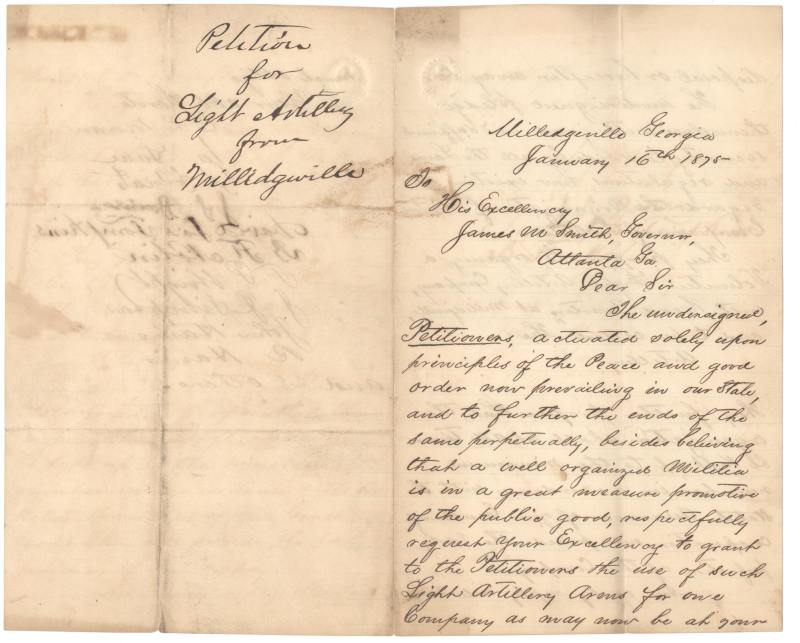 Petition
for
Light Artillery
from
Milledgeville
Milledgeville Georgia
January 16th 1875
To
His Excellency
James M Smith, Governor,
Atlanta Ga
Dear Sir
The undersigned,
Petitioners, actuated solely upon
principles of the Peace and good
order now prevailing in our State,
and to further the ends of the
same perpetually, besides believing
that a well organized Militia
is in a great measure promotive
of the public good, respectfully
request your Excellency to grant
to the Petitioners the use of such
Light Artillery Arms for one
Company as may now be at your